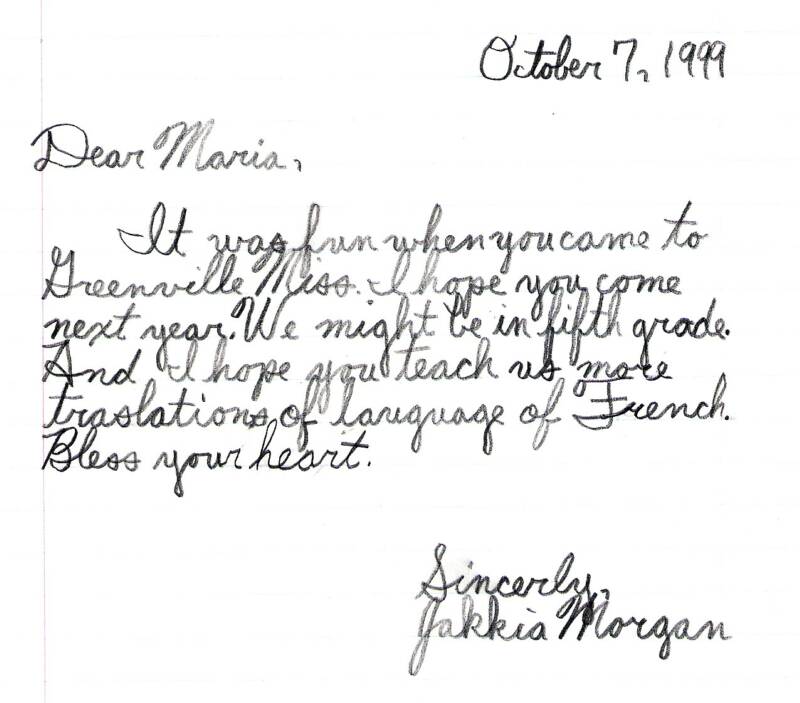 October 7, 1999
Dear Maria,
It was fun when you came to
Greenville Miss. I hope you come
next year. We might be in fifth grade.
And I hope you teach us more
traslations of language of French.
Bless your heart.
Sincerly,
Jakkia Morgan